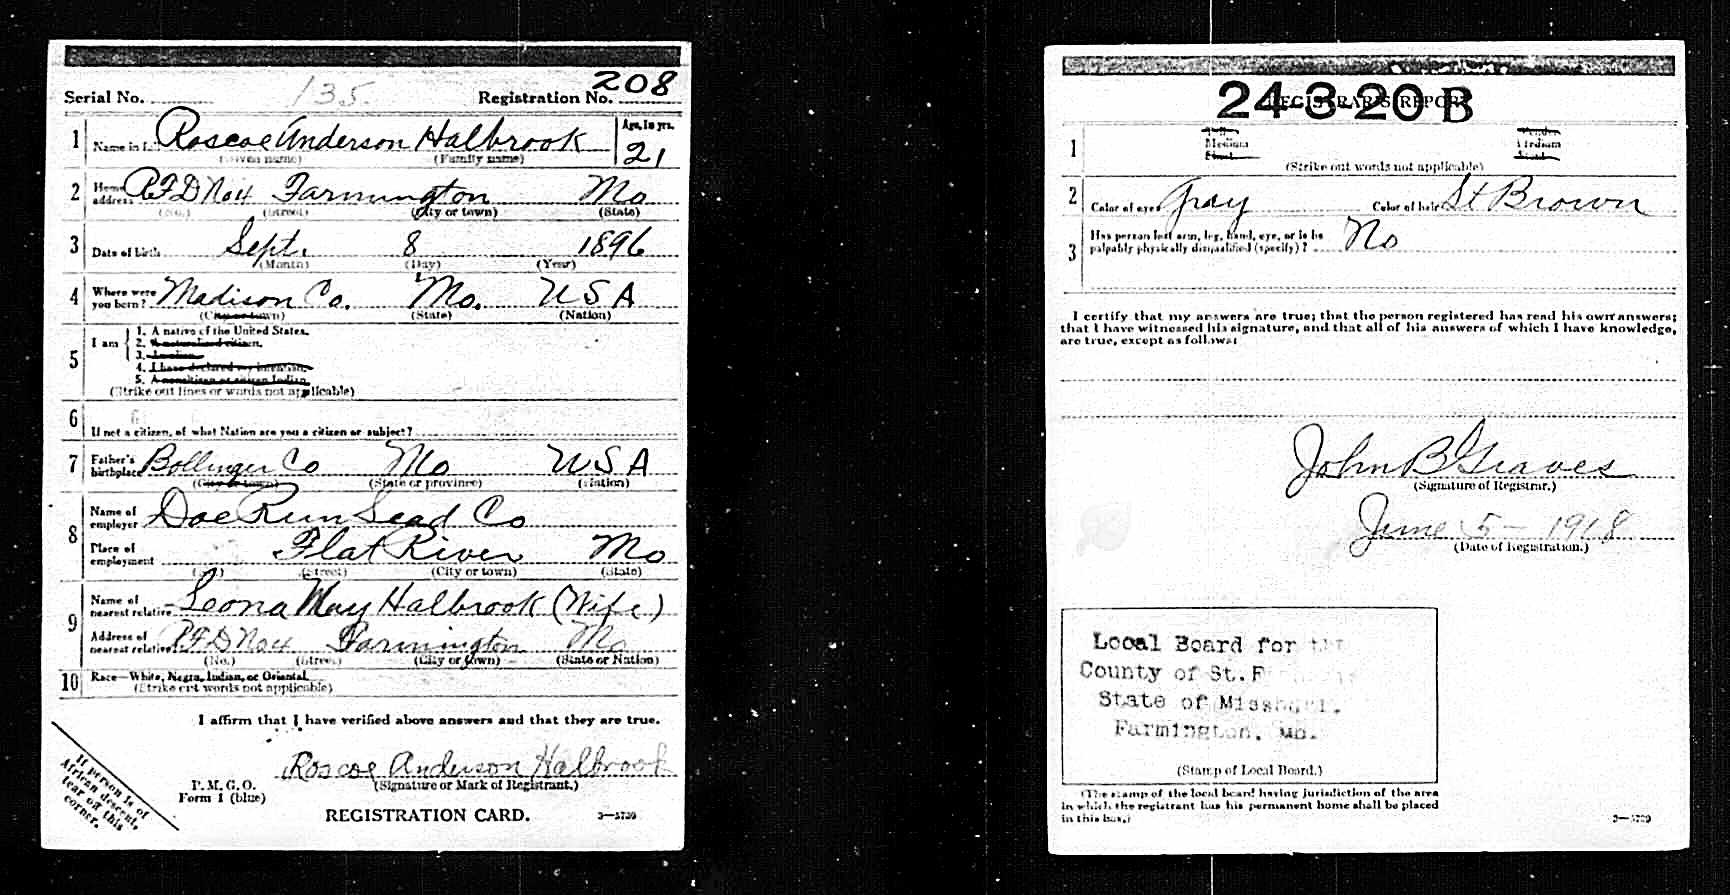 Serial No. 135. Registration No. 208
1 Name in Roscoe Anderson Halbrook Age, in yrs. 21
(Given name) (Family name)
2 Home address R.F.D No4 Farmington Mo
(No.) (Street) (City or town) (State)
3 Date of birth Sept. 8 1896
(Month) (Day) (Year)
4 Where were you born? Madison Co. Mo. USA
(City or town) (State) (Nation)
5 I am
1. A native of the United States.
2. A naturalized citizen.
3. An alien.
4. I have declared my intention.
5. A noncitizen or citizen Indian.
(Strike out lines or words not applicable)
6 If not a citizen, of what Nation are you a citizen or subject?
7 Father's birthplace Bollinger Co Mo USA
(City or town) (State or province) (Nation)
8 Name of employer Doe Run Lead Co
Place of employment Flat River Mo
(No.) (Street) (City or town) (State)
9 Name of nearest relative Leona May Halbrook (Wife)
Address of nearest relative R.F.D No4 Farmington Mo
(No.) (Street) (City or town) (State or Nation)
10 Race—White, Negro, Indian, or Oriental.
(Strike out words not applicable)
I affirm that I have verified above answers and that they are true.
Roscoe Anderson Halbrook
P. M. G. O.
Form 1 (blue)
(Signature or Mark of Registrant.)
REGISTRATION CARD. 3—5739
If person is of
African descent,
tear off this
corner.
REGISTRAR'S REPORT
24-3-20 B
1 Medium Medium
(Strike out words not applicable)
2 Color of eyes Gray Color of hair St Brown
3 Has person lost arm, leg, hand, eye, or is he
palpably physically disqualified (specify)? No
I certify that my answers are true; that the person registered has read his own answers;
that I have witnessed his signature, and that all of his answers of which I have knowledge,
are true, except as follows:
John B Graves
(Signature of Registrar.)
June 5 - 1918
(Date of Registration.)
Local Board for the
County of St.
State of Missouri.
Farmington, Mo.
(Stamp of Local Board.)
(The stamp of the local board having jurisdiction of the area
in which the registrant has his permanent home shall be placed
in this box.)
3—5739